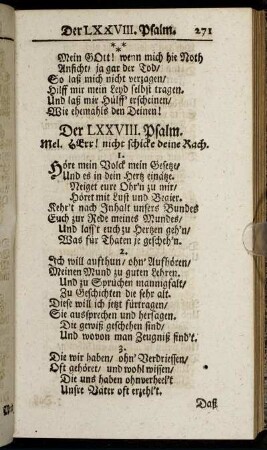 Der LXXVIII. Psalm. 271
* * *
Mein GOtt! wenn mich die Noth
Anficht/ ja gar der Tod/
So laß mich nicht verzagen/
Hilff mir mein Leyd selbst tragen.
Und laß mir Hülff' erscheinen/
Wie ehemahls den Deinen!
Der LXXVIII. Psalm.
Mel. HErr! nicht schicke deine Rach.
1.
Höre mein Volck mein Gesetze/
Und es in dein Hertz einätze.
Neiget eure Ohr'n zu mir/
Höret mit Lust und Begier.
Kehr't nach Inhalt unsers Bundes
Euch zur Rede meines Mundes/
Und lass't euch zu Hertzen geh'n/
Was für Thaten je gescheh'n.
2.
Ich will aufthun/ ohn' Aufhören/
Meinen Mund zu guten Lehren.
Und zu Sprüchen mannigfalt/
Zu Geschichten die sehr alt.
Diese will ich jetzt fürtragen/
Sie aussprechen und hersagen.
Die gewiß geschehen sind/
Und wovon man Zeugniß find't.
3.
Die wir haben/ ohn' Verdriessen/
Oft gehöret/ und wohl wissen/
Die uns haben ohnverheel't
Unsre Väter oft erzehl't.
Daß